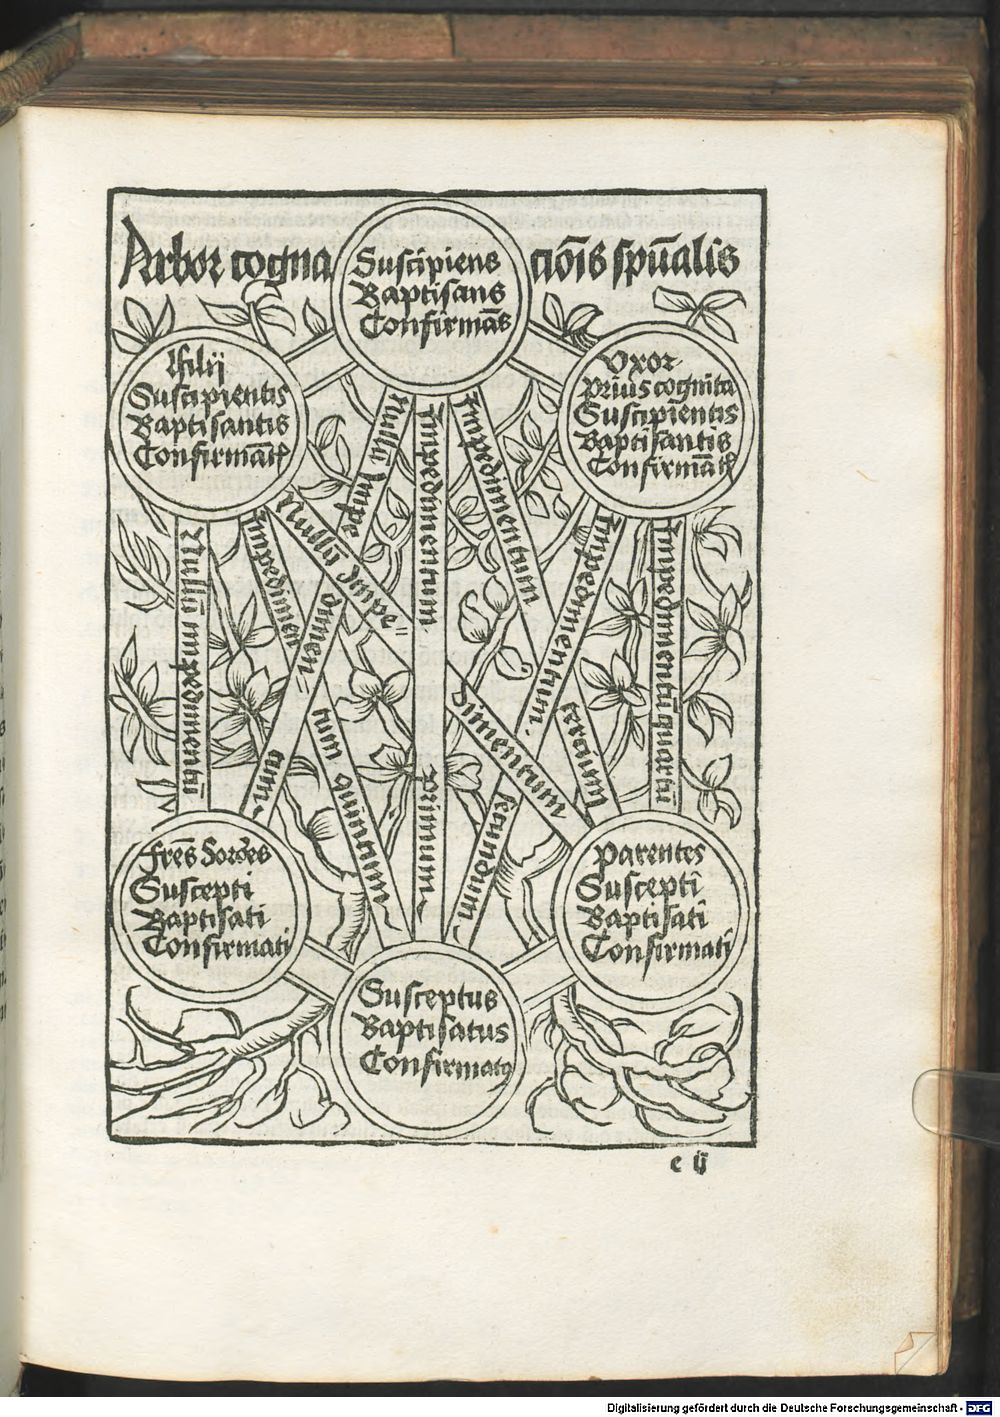 Arbor cognacio̅is sp̅ualis
Suscipiens
Baptisans
Confirma̅s
Filij
Suscipientis
Baptisantis
Confirma̅t
Uxor
prius cognita
Suscipientis
Baptisantis
Confirma̅t
Nullu̅ Impe
dimen
tum
Impedimentum
primum
Impedimentum
tercium
Nullu̅ impedimentu̅
Impedimen
tum quintum
Nullu̅ Impe=
dimentum
Impedimentum.
secundum
Impedimentu̅ quartu̅
fr̅es Sorores
Suscepti
Baptisati
Confirmati
parentes
Suscepti
Baptisati
Confirmati
Susceptus
Baptisatus
Confirmatꝰ
c ij
Digitalisierung gefördert durch die Deutsche Forschungsgemeinschaft - DFG